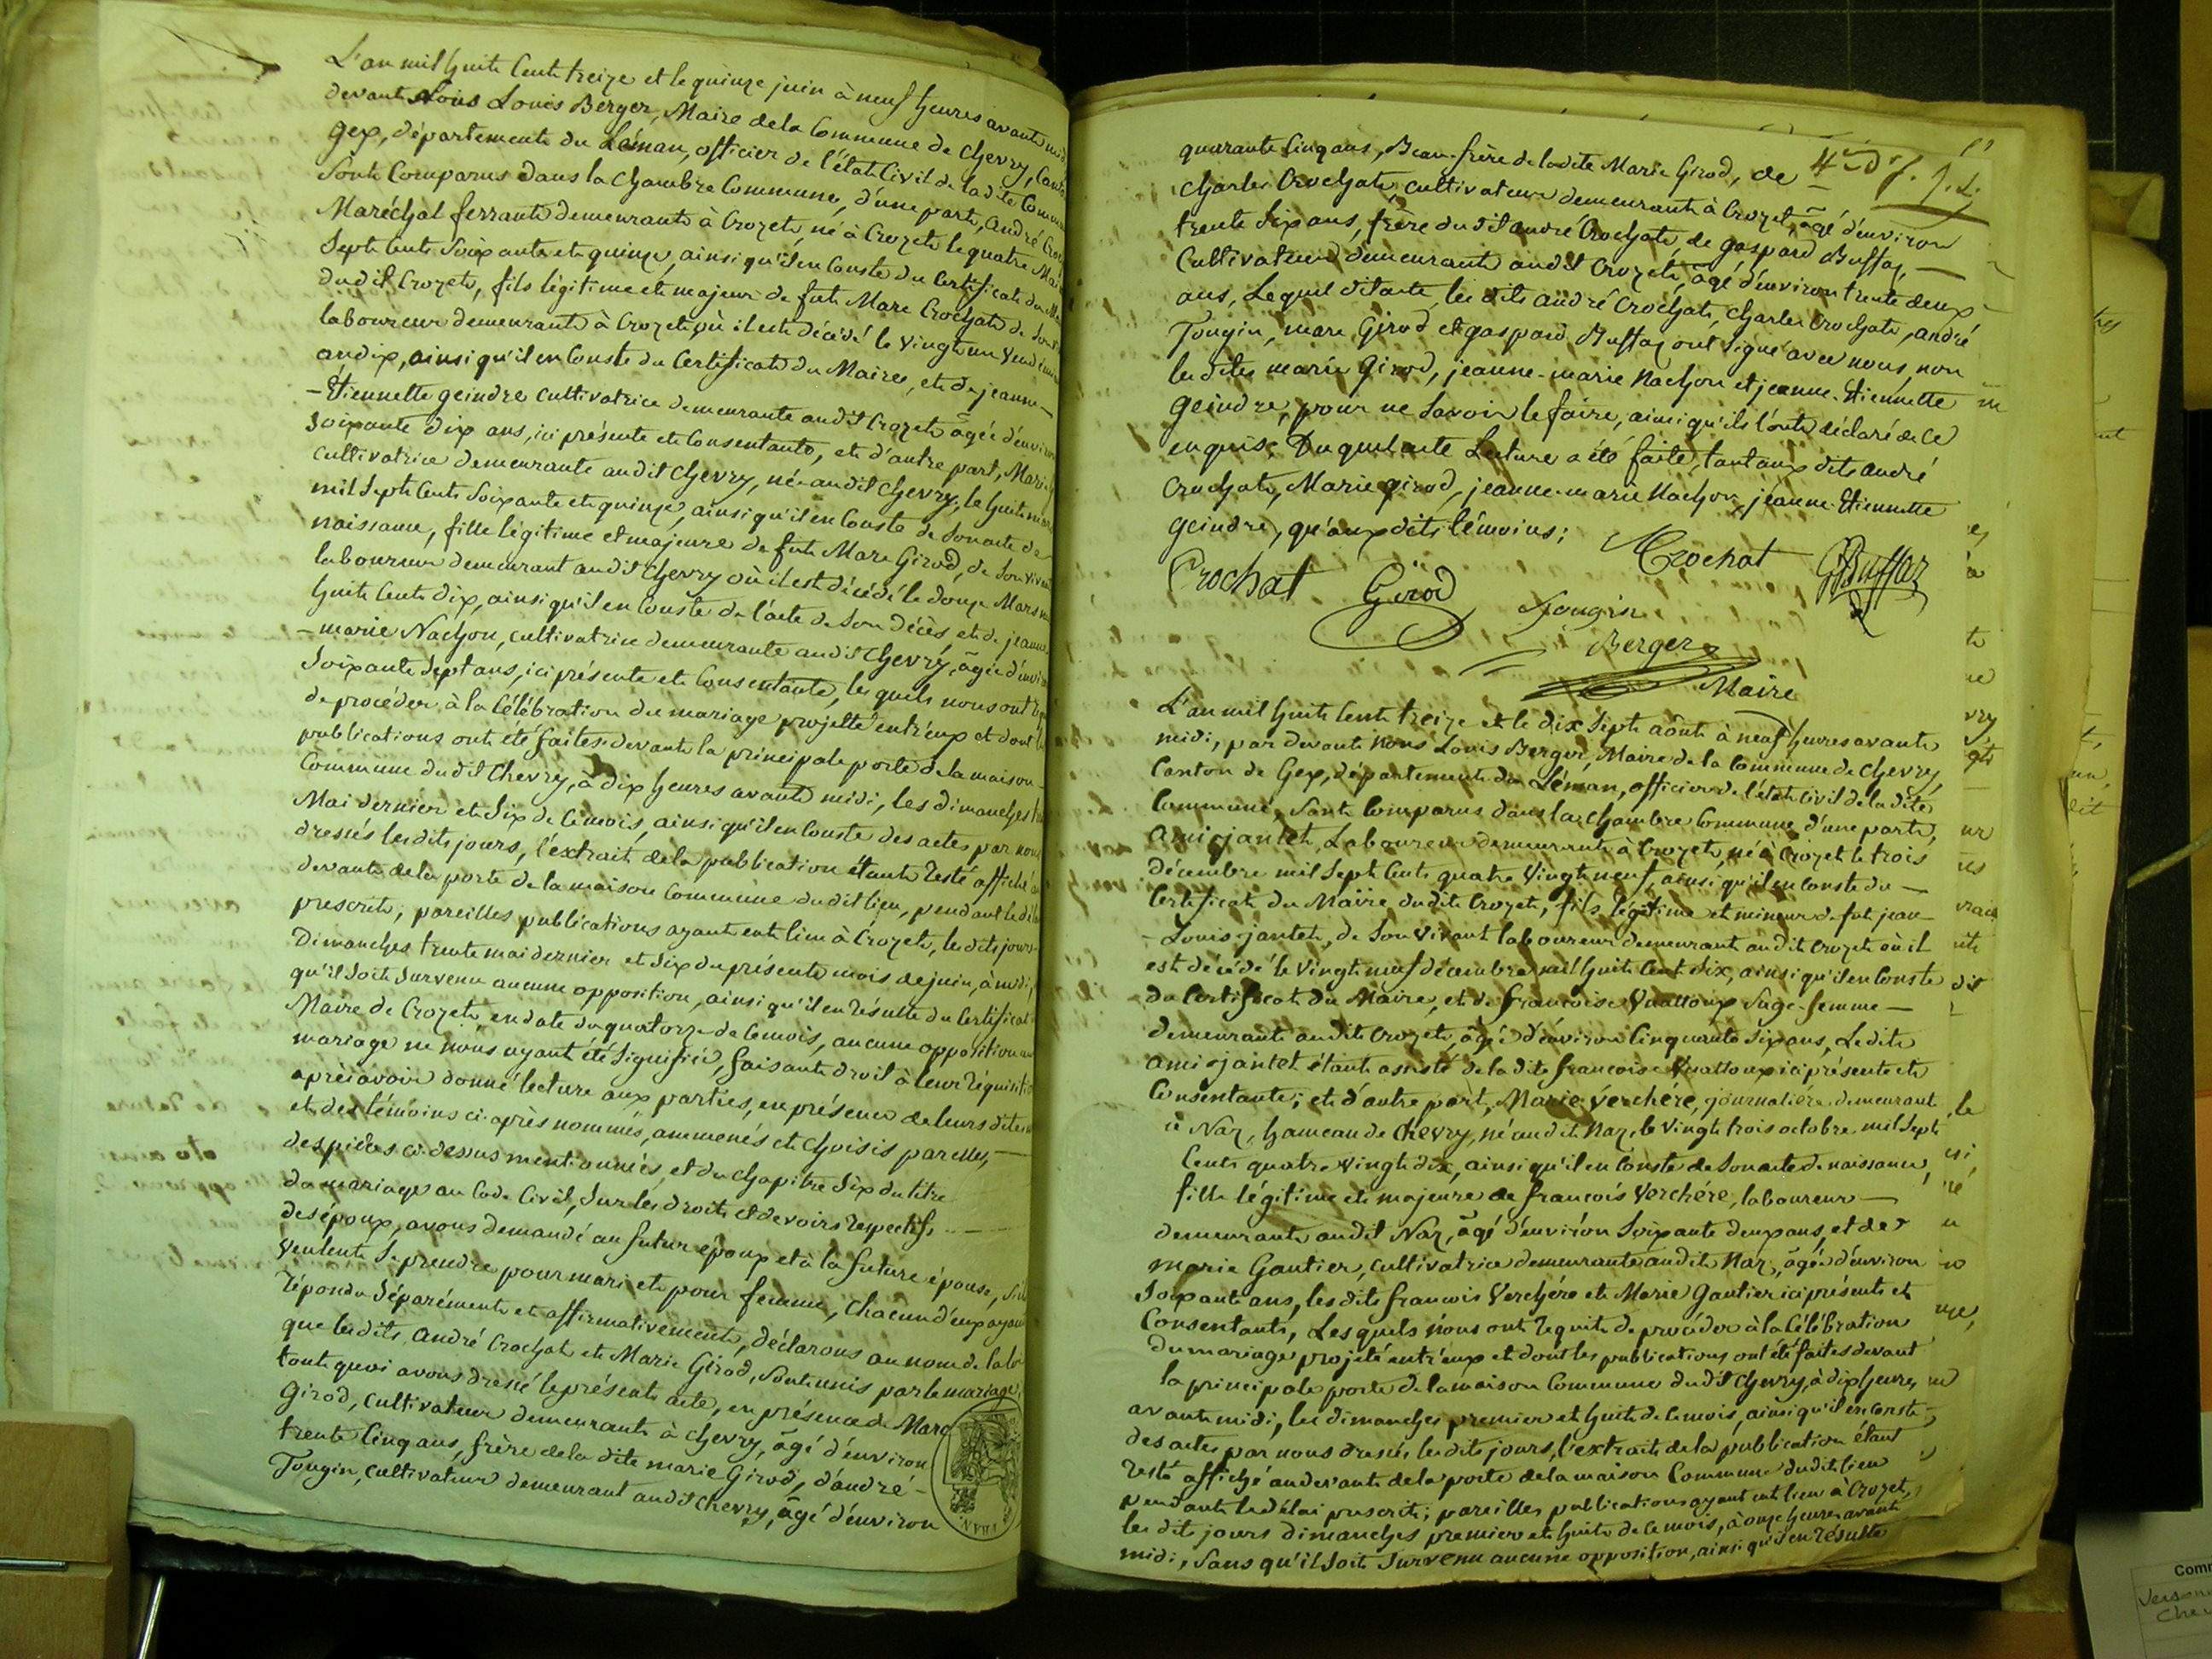 L'an mil huit Cent treize et le quinze juin à neuf heures avant
devant Nous Louis Berger, Maire de la Commune de Chevry,
Gex, département du Léman, officier de l'état Civil de la dite
Sont Comparus dans la Chambre Commune, d'une part, André
Maréchal ferrant demeurant à Crozet, né à Crozet le quatre
Sept Cent Soixante et quinze, ainsi qu'il en Conste du Certificat du
dudit Crozet, fils légitime et majeur de fut Marc Crochat de Son
laboureur demeurant à Crozet, où il est décédé le Vingt un
an dix, ainsi qu'il en Conste du Certificat du Maire, et de jeanne
-Etiennette geindre cultivatrice demeurante audit Crozet âgée
Soixante dix ans, ici présente et Consentante, et d'autre part,
cultivatrice demeurante audit Chevry, née audit Chevry, le huit
mil Sept Cent Soixante et quinze, ainsi qu'il en Conste de Son acte de
naissance, fille légitime et majeure de fut Marc Girod, de Son
laboureur demeurant audit Chevry où il est décédé le douze Mars
huit Cent dix, ainsi qu'il en Conste de l'acte de Son décès, et de jeanne
-marie Nachon, cultivatrice demeurante audit Chevry, âgée
Soixante Sept ans, ici présente et Consentante, lesquels nous ont
de procéder à la Célébration du mariage projetté entr'eux et dont
publications ont été faites devant la principale porte de la maison
Commune dudit Chevry, à dix heures avant midi, les dimanches
Mai dernier et Six de Ce mois, ainsi qu'il en Conste des actes par nous
dressés les dits jours, l'extrait de la publication étant resté affiché
devant de la porte de la maison Commune dudit lieu, pendant le
prescrit; pareilles publications ayant eut lieu à Crozet, les dits jours
Dimanches trente mai dernier et Six du présent mois de juin, à midi,
qu'il Soit Survenu aucune opposition, ainsi qu'il en résulte du Certificat
Maire de Crozet, en date du quatorze de Ce mois, aucune opposition
mariage ne nous ayant été Signifiée, faisant droit à leur
après avoir donné lecture aux parties, en présence de leurs dites
et des témoins ci-après nommés, ammenés et choisis par elles,
des pièces ci-dessus mentionnées, et du chapitre Six du titre
du mariage au Code Civil, Sur les droits et devoirs respectifs
des époux, avons demandé au futur époux et à la future épouse,
Veulent Se prendre pour mari et pour femme, Chacun d'eux ayant
répondu Séparément et affirmativement, déclarons au nom de la loi
que les dits André Crochat et Marie Girod, Sont unis par le mariage,
tout quoi avons dressé le présent acte, en présence de Marc
Girod, cultivateur demeurant à Chevry, âgé d'environ
trente Cinq ans, frère de la dite marie Girod, d'andré
Tougin, cultivateur demeurant audit Chevry, âgé d'environ
quarante Cinq ans, Beau-frère de la dite Marie Girod, de
Charles Crochat, cultivateur demeurant à Crozet, âgé d'environ
trente Six ans, frère du dit andré Crochat, de gaspard Buffaz,
Cultivateur demeurant audit Crozet, âgé d'environ trente deux
ans, Lequel dit acte, les dits andré Crochat, Charles Crochat, andré
Tougin, marc Girod et gaspard Buffaz ont Signé avec nous, non
les dites marie Girod, jeanne-marie Nachon et jeanne-Etiennette
Geindre, pour ne Savoir le faire, ainsi qu'ils l'ont déclaré de Ce
enquis. Duquel acte Lecture a été faite, tant aux dits andré
Crochat, Marie girod, jeanne-marie Nachon, jeanne-Etiennette
geindre, qu'aux dits témoins;
Crochat Girod Tougin Crochat GBuffaz
Berger
Maire
L'an mil huit Cent treize et le dix Sept août à neuf heures avant
midi, par devant Nous Louis Berger, Maire de la Commune de Chevry,
Canton de Gex, département du Léman, officier de l'état Civil de la dite
Commune, Sont Comparus dans la Chambre Commune d'une part,
Ami jantet, Laboureur demeurant à Crozet, né à Crozet le trois
décembre mil Sept Cent quatre Vingt neuf, ainsi qu'il en Conste du
Certificat du Maire dudit Crozet, fils légitime et mineur de fut jean
-Louis jantet, de Son Vivant laboureur demeurant audit Crozet où il
est décédé le Vingt neuf décembre mil huit Cent dix, ainsi qu'il en Conste
du Certificat du Maire, et de françoise Vuattoux Sage-femme
demeurante audit Crozet, âgée d'environ Cinquante Six ans, Le dit
ami jantet étant assisté de la dite françoise Vuattoux ici présente et
Consentante; et d'autre part, Marie Verchére, journalière demeurant
à Naz, hameau de Chevry, né audit Naz, le Vingt trois octobre mil Sept
Cent quatre Vingt dix, ainsi qu'il en Conste de Son acte de naissance,
fille légitime et majeure de françois Verchére, laboureur
demeurant audit Naz, âgé d'environ Soixante deux ans, et de
marie Gautier, cultivatrice demeurante audit Naz, âgée d'environ
Soixante ans, les dits françois Verchére et Marie Gautier ici présents et
Consentants, Lesquels nous ont requis de procéder à la Célébration
du mariage projeté entr'eux et dont les publications ont été faites devant
la principale porte de la maison Commune dudit Chevry, à dix heures
avant midi, les dimanches premier et huit de Ce mois, ainsi qu'il en Conste
des actes par nous dressés les dits jours, l'extrait de la publication étant
resté affiché au devant de la porte de la maison Commune dudit lieu
pendant le délai prescrit; pareilles publications ayant eut lieu à Crozet,
les dits jours dimanches premier et huit de Ce mois, à onze heures avant
midi, Sans qu'il Soit Survenu aucune opposition, ainsi qu'il en résulte